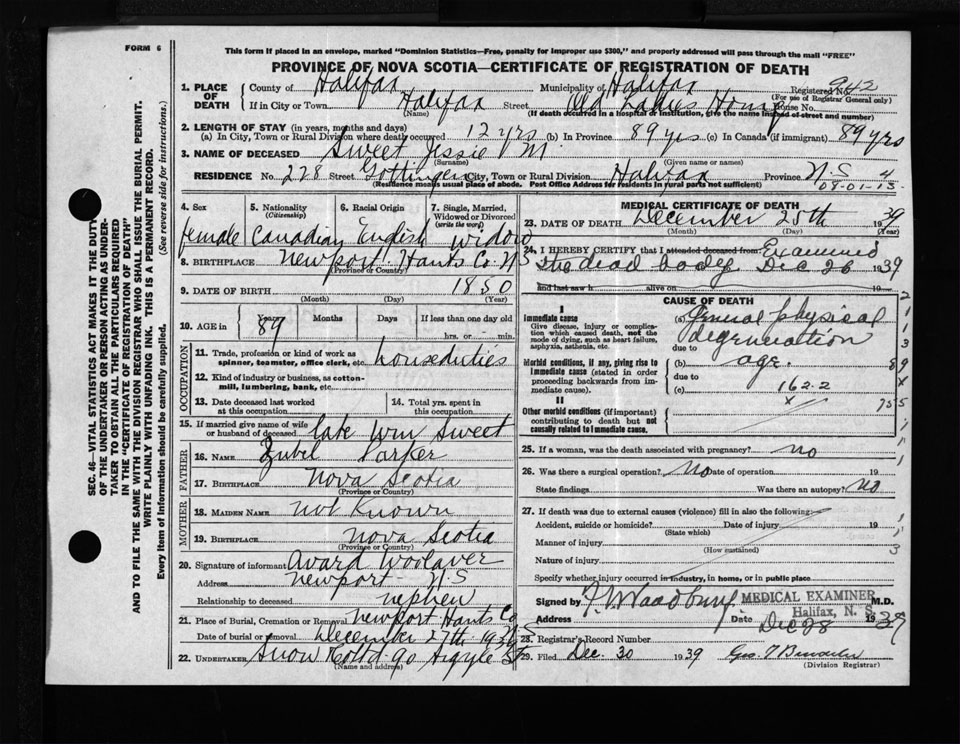 FORM 6
This form if placed in an envelope, marked "Dominion Statistics—Free, penalty for improper use $300," and properly addressed will pass through the mail "FREE"
PROVINCE OF NOVA SCOTIA—CERTIFICATE OF REGISTRATION OF DEATH
SEC. 46—VITAL STATISTICS ACT MAKES IT THE DUTY
OF THE UNDERTAKER OR PERSON ACTING AS UNDER-
TAKER TO OBTAIN ALL THE PARTICULARS REQUIRED
IN THE "CERTIFICATE OF REGISTRATION OF DEATH"
AND TO FILE THE SAME WITH THE DIVISION REGISTRAR WHO SHALL ISSUE THE BURIAL PERMIT.
WRITE PLAINLY WITH UNFADING INK. THIS IS A PERMANENT RECORD.
Every item of information should be carefully supplied. (See reverse side for instructions.)
1. PLACE OF DEATH
County of Halifax Municipality of Halifax Registered No. 942
(For use of Registrar General only)
If in City or Town Halifax Street Old Ladies Home House No.
(Name) (If death occurred in a hospital or institution, give the name instead of street and number)
2. LENGTH OF STAY (in years, months and days)
(a) In City, Town or Rural Division where death occurred 12 yrs (b) In Province 89 yrs (c) In Canada (if immigrant) 89 yrs
3. NAME OF DECEASED Sweet Jessie M.
(Surname) (Given name or names)
RESIDENCE No. 228 Street Gottingen City, Town or Rural Division Halifax Province N.S. 4
(Residence means usual place of abode. Post Office Address for residents in rural parts not sufficient) 08-01-13
4. Sex 5. Nationality (Citizenship) 6. Racial Origin 7. Single, Married, Widowed or Divorced (write the word)
female Canadian English widow
8. BIRTHPLACE Newport Hants Co. N S
(Province or Country)
9. DATE OF BIRTH 1850
(Month) (Day) (Year)
10. AGE in Years Months Days If less than one day old
89 hrs. or min.
OCCUPATION
11. Trade, profession or kind of work as spinner, teamster, office clerk, etc. houseduties
12. Kind of industry or business, as cotton-mill, lumbering, bank, etc.
13. Date deceased last worked at this occupation 14. Total yrs. spent in this occupation
15. If married give name of wife or husband of deceased late Wm Sweet
FATHER
16. NAME Parker
17. BIRTHPLACE Nova Scotia
(Province or Country)
MOTHER
18. MAIDEN NAME Not Known
19. BIRTHPLACE Nova Scotia
(Province or Country)
20. Signature of informant Avard Woolaver
Address Newport - N.S
Relationship to deceased nephew
21. Place of Burial, Cremation or Removal Newport Hants Co
Date of burial or removal December 27th 1939
22. UNDERTAKER Snow & Co Ltd 90 Argyle St
(Name and address)
MEDICAL CERTIFICATE OF DEATH
23. DATE OF DEATH December 25th 1939
(Month) (Day) (Year)
24. I HEREBY CERTIFY that I attended deceased from: Examined
the dead body Dec 26 1939
and last saw h alive on 19
CAUSE OF DEATH
I
Immediate cause
Give disease, injury or complication which caused death, not the mode of dying, such as heart failure, asphyxia, asthenia, etc.
(a) General physical
degeneration
due to
Morbid conditions, if any, giving rise to immediate cause (stated in order proceeding backwards from immediate cause).
(b) age.
due to
(c) 162-2
II
Other morbid conditions (if important) contributing to death but not causally related to immediate cause.
25. If a woman, was the death associated with pregnancy? no
26. Was there a surgical operation? no Date of operation 19
State findings Was there an autopsy? no
27. If death was due to external causes (violence) fill in also the following:
Accident, suicide or homicide? Date of injury 19
(State which)
Manner of injury
(How sustained)
Nature of injury
Specify whether injury occurred in industry, in home, or in public place
Signed by Woodbury MEDICAL EXAMINER M.D.
Halifax, N. S.
Address Date Dec 28 1939
28. Registrar's Record Number
29. Filed Dec. 30 1939
(Division Registrar)